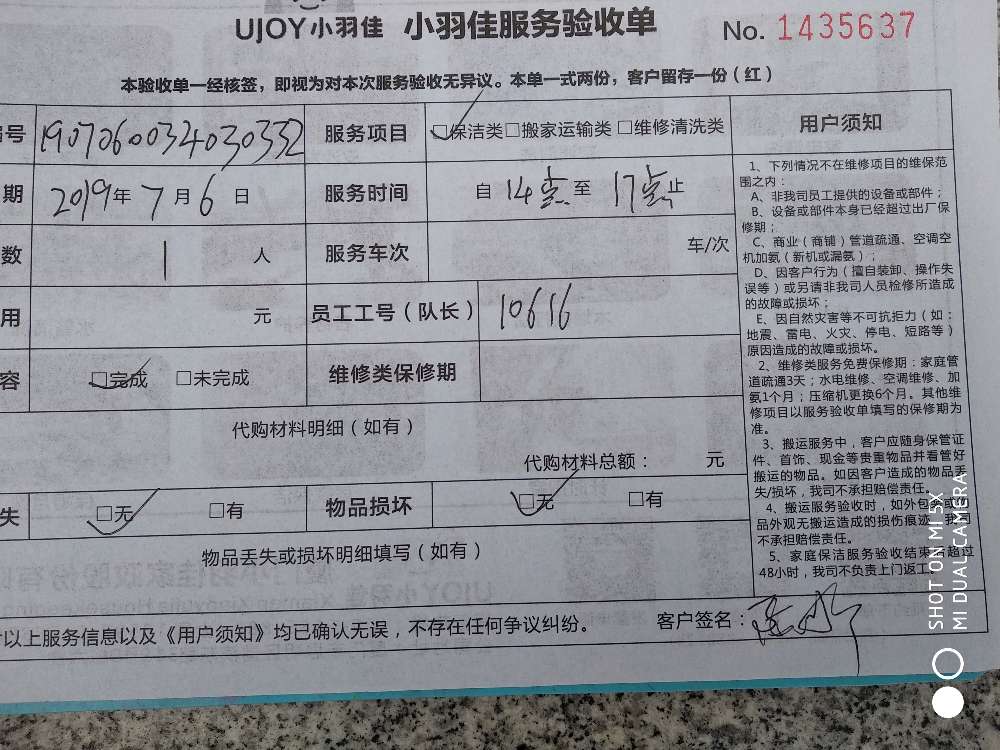 UJOY小羽佳 小羽佳服务验收单 No. 1435637
本验收单一经核签，即视为对本次服务验收无异议。本单一式两份，客户留存一份（红）
号 1907060034030332 服务项目 □保洁类□搬家运输类 □维修清洗类 用户须知
期 2019年7月6日 服务时间 自 14点 至 17点止
数 1 人 服务车次 车/次
用 元 员工工号（队长） 10616
容 □完成 □未完成 维修类保修期
代购材料明细（如有）
代购材料总额： 元
失 □无 □有 物品损坏 □无 □有
物品丢失或损坏明细填写（如有）
以上服务信息以及《用户须知》均已确认无误，不存在任何争议纠纷。 客户签名：
1、下列情况不在维修项目的维保范
围之内：
A、非我司员工提供的设备或部件；
B、设备或部件本身已经超过出厂保
修期；
C、商业（商铺）管道疏通、空调空
机加氨（新机或漏氨）；
D、因客户行为（擅自装卸、操作失
误等）或另请非我司人员检修所造成
的故障或损坏；
E、因自然灾害等不可抗拒力（如：
地震、雷电、火灾、停电、短路等）
原因造成的故障或损坏。
2、维修类服务免费保修期：家庭管
道疏通3天；水电维修、空调维修、加
氨1个月；压缩机更换6个月。其他维
修项目以服务验收单填写的保修期为
准。
3、搬运服务中，客户应随身保管证
件、首饰、现金等贵重物品并看管好
搬运的物品。如因客户造成的物品丢
失/损坏，我司不承担赔偿责任。
4、搬运服务验收时，如外包装或
品外观无搬运造成的损伤痕迹，我司
不承担赔偿责任。
5、家庭保洁服务验收结束后超过
48小时，我司不负责上门返工。
SHOT ON MI 5X
MI DUAL CAMERA